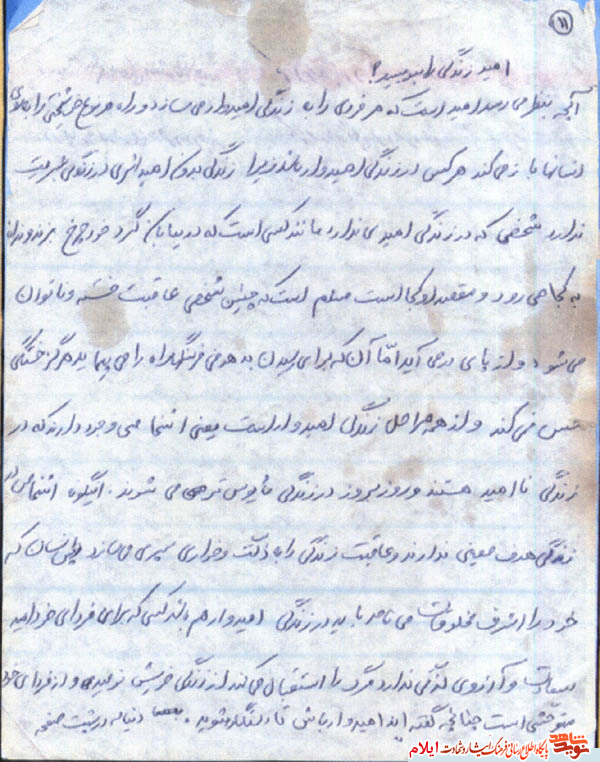 ۱۱
امید زندگی را بنویسید؟
آنچه بنظر می رسد امید است که هر فردی را به زندگی امیدوار می سازد و راه هر نوع خوشبختی را برای
انسانها باز می کند هر کس در زندگی امیدوار باشد زیرا زندگی بدون امید اثری در زندگی بشریت
ندارد شخصی که در زندگی امیدی ندارد مانند کسی است که در بیابان گرد خود چرخ بزند و نداند
به کجا می رود و مقصد او کجا است مسلم است که چنین شخصی عاقبت خسته و ناتوان
می شود و از پای در می آید امّا آن که برای رسیدن به هدفی فرسنگها راه را می پیماید هرگز خستگی
حس نمی کند و از همه مراحل زندگی امیدوار است یعنی اشخاصی وجود دارند که در
زندگی نا امید هستند و روز بروز در زندگی مأیوس تر می شوند. اینگونه اشخاص در
زندگی هدف معینی ندارند و عاقبت زندگی را به ذلت و خواری سپری می سازد ولی انسان که
خود را اشرف مخلوقات می نامد باید در زندگی امیدوار هم باشد کسی که برای فردای خود امید
سعادت و آرزوی زندگی ندارد مرگ را استقبال می کند از زندگی خویش نومید و از فردای خود
متوحش است چنانچه گفته اند امیدوار باش تا رستگار شوید. دنباله در پشت صفحه
نوید شاهد پایگاه اطلاع رسانی فرهنگ ایثار و شهادت ایلام